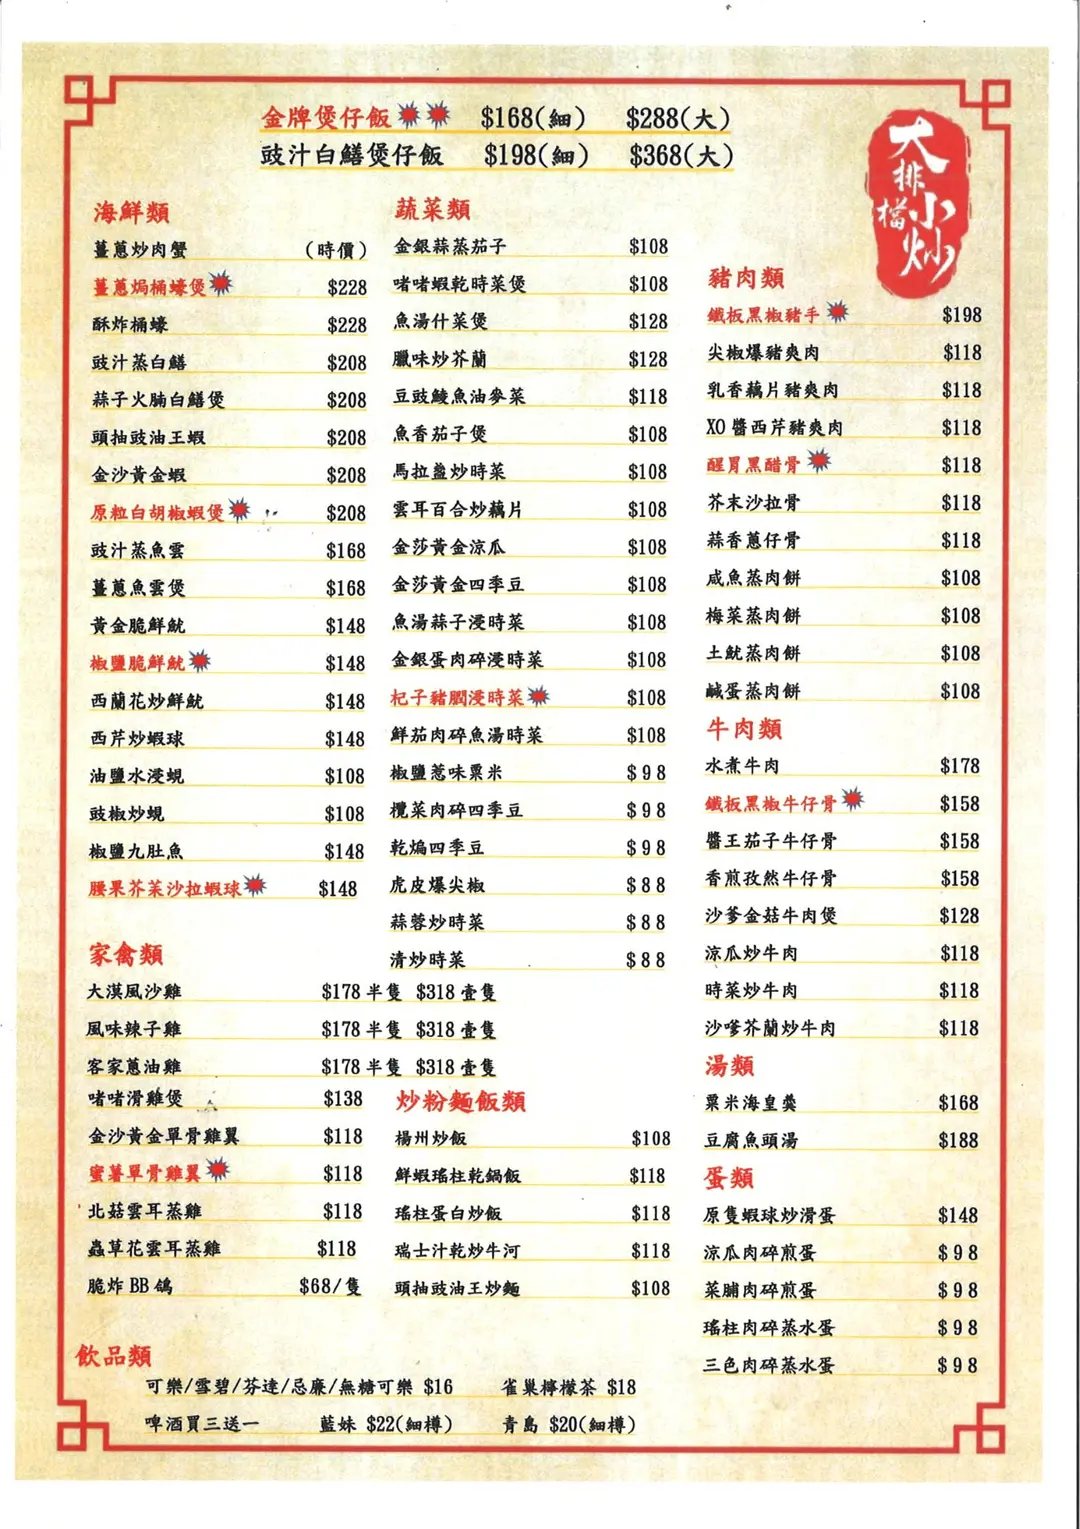 金牌煲仔飯 $168(細) $288(大)
豉汁白鱔煲仔飯 $198(細) $368(大)
大排檔小炒
海鮮類
薑蔥炒肉蟹 (時價)
薑蔥焗桶蠔煲 $228
酥炸桶蠔 $228
豉汁蒸白鱔 $208
蒜子火腩白鱔煲 $208
頭抽豉油王蝦 $208
金沙黃金蝦 $208
原粒白胡椒蝦煲 $208
豉汁蒸魚雲 $168
薑蔥魚雲煲 $168
黃金脆鮮魷 $148
椒鹽脆鮮魷 $148
西蘭花炒鮮魷 $148
西芹炒蝦球 $148
油鹽水浸蜆 $108
豉椒炒蜆 $108
椒鹽九肚魚 $148
腰果芥茉沙拉蝦球 $148
家禽類
大漠風沙雞 $178 半隻 $318 壹隻
風味辣子雞 $178 半隻 $318 壹隻
客家蔥油雞 $178 半隻 $318 壹隻
啫啫滑雞煲 $138
金沙黃金單骨雞翼 $118
蜜薯單骨雞翼 $118
北菇雲耳蒸雞 $118
蟲草花雲耳蒸雞 $118
脆炸 BB 鴿 $68/隻
蔬菜類
金銀蒜蒸茄子 $108
啫啫蝦乾時菜煲 $108
魚湯什菜煲 $128
臘味炒芥蘭 $128
豆豉鯪魚油麥菜 $118
魚香茄子煲 $108
馬拉盞炒時菜 $108
雲耳百合炒藕片 $108
金莎黃金涼瓜 $108
金莎黃金四季豆 $108
魚湯蒜子浸時菜 $108
金銀蛋肉碎浸時菜 $108
杞子豬膶浸時菜 $108
鮮茄肉碎魚湯時菜 $108
椒鹽惹味粟米 $98
欖菜肉碎四季豆 $98
乾煸四季豆 $98
虎皮爆尖椒 $88
蒜蓉炒時菜 $88
清炒時菜 $88
炒粉麵飯類
揚州炒飯 $108
鮮蝦瑤柱乾鍋飯 $118
瑤柱蛋白炒飯 $118
瑞士汁乾炒牛河 $118
頭抽豉油王炒麵 $108
豬肉類
鐵板黑椒豬手 $198
尖椒爆豬爽肉 $118
乳香藕片豬爽肉 $118
XO 醬西芹豬爽肉 $118
醒胃黑醋骨 $118
芥末沙拉骨 $118
蒜香蔥仔骨 $118
咸魚蒸肉餅 $108
梅菜蒸肉餅 $108
土魷蒸肉餅 $108
鹹蛋蒸肉餅 $108
牛肉類
水煮牛肉 $178
鐵板黑椒牛仔骨 $158
醬王茄子牛仔骨 $158
香煎孜然牛仔骨 $158
沙爹金菇牛肉煲 $128
涼瓜炒牛肉 $118
時菜炒牛肉 $118
沙嗲芥蘭炒牛肉 $118
湯類
粟米海皇羹 $168
豆腐魚頭湯 $188
蛋類
原隻蝦球炒滑蛋 $148
涼瓜肉碎煎蛋 $98
菜脯肉碎煎蛋 $98
瑤柱肉碎蒸水蛋 $98
三色肉碎蒸水蛋 $98
飲品類
可樂/雪碧/芬達/忌廉/無糖可樂 $16 雀巢檸檬茶 $18
啤酒買三送一 藍妹 $22(細樽) 青島 $20(細樽)